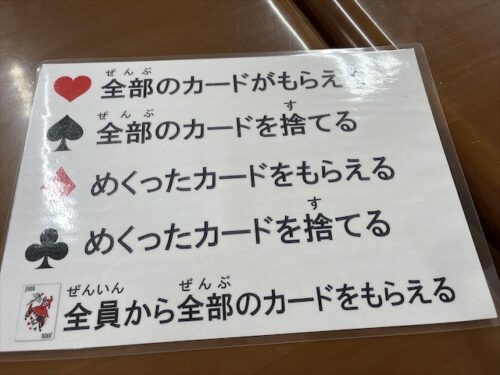 ぜんぶ
全部のカードがもらえ
ぜんぶ す
全部のカードを捨てる
めくったカードをもらえる
す
めくったカードを捨てる
ぜんいん ぜんぶ
全員から全部のカードをもらえる